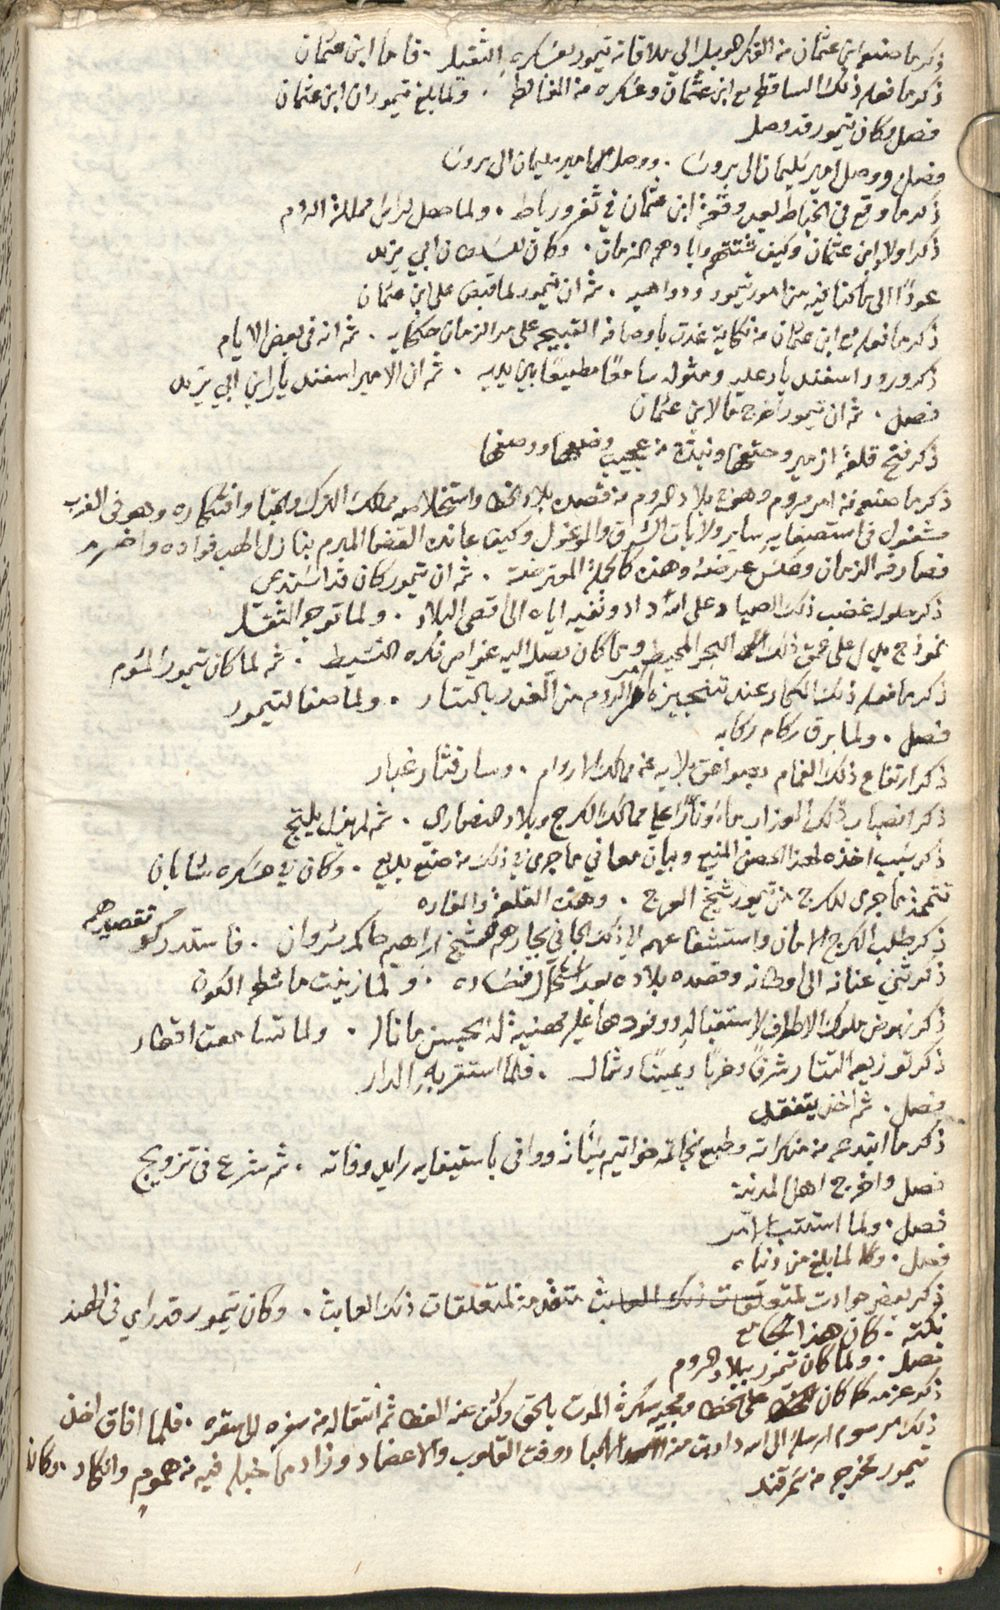 ذكر ما صنع ابن عثمان من الفكر الوبيل الى ملاقاته تيمور بعسكره الثقيل . فاما ابن عثمان
ذكر ما فعله ذلك الساقطه مع ابن عثمان وعسكره من المغالطه . ولما بلغ تيمور ان ابن عثمان
فصل وكان تيمور قد وصل
فصل ووصل امير سليمان الى بروسا . ووصل امير سليمان الى بروسا
ذكر ما وقع في الخباط بعد وقعة ابن عثمان في ثغر ورباط . ولما حصل لراس مملكة الروم
ذكر اولاد ابن عثمان وكيف شتتهم وابادهم الزمان . وكان للسلطان ابي يزيد
عودًا الى ما كنا فيه من امور تيمور ودواهيه . ثم ان تيمور لما قبض على ابن عثمان
ذكر ما فعله مع ابن عثمان من نكاية غدت باوصافه القبيحه على مر الزمان حكايه . ثم انه في بعض الايام
ذكر ورود اسفنديار عليه ومثوله سامعًا مطيعًا بين يديه . ثم ان الامير اسفنديار ابن ابي يزيد
فصل . ثم ان تيمور اخرج مالا بن عثمان
ذكر فتح قلعة ازمير وحتفها ونبذة من عجيب وضعها ووصفها
ذكر ما صنعه من امر مروم وهو في بلاد الروم من قصده بلاد الخطا واستخلاصه ممالك الترك والجتا وافتكاره وهو في الغرب
مشغول في استصفايه ساير ولايات الشرق والموغول وكيف عانده القضا المبرم بنازل الهب فواده واضرم
فصارفه الزمان وعكس عرضه وهذه كالجملة المعترضة . ثم ان تيمور كان قد استدعي
ذكر حلول غضب ذلك الصياد على الله داد ونفيه اياه الى اقصى البلاد . ولما توجه الثقيل
نموذج يدل على عمق ذلك البحر المحيط وما كان يصل اليه غواص فكره النشيط . ثم لما كان تيمور المشوم
ذكر ما فعله ذلك المكار عند تنجيزه امر الروم من الغدر بالتتار . ولما صفا لتيمور
فصل . ولما برق ركام ركابه
ذكر ارتفاع ذلك الغمام بصواعق بلايه عن ممالك الاروام . وسار فثار غبار
ذكر انصباب ذلك العذاب ماءً ونارًا على ممالك الكرج وبلاد النصارى . ثم لم يزل يلتج
ذكر سبب اخذه لهذا الحصن المنيع وبيان معاني ما جرى في ذلك من صنع بديع . وكان في عسكره شابان
تتمة ما جرى للكرج من تيمور شيخ العرج . وهذه القلعة والمغاره
ذكر طلب الكرج الامان واستشفاعهم الى ذلك الجاني بجارهم الشيخ ابراهيم حاكم شروان . فاستدركو تقصيرهم
ذكر ثني عنانه الى اوطانه وقصده بلاده بعد استكمال فساده . ولما زينت ماشطه الكون
ذكر نهوض ملوك الاطراف لاستقباله ووفودها عليه مهنية له بحسن ماناله . ولما تسامعت اقطار
ذكر توزيعه التتار شرقًا وغربًا ويمينًا وشمالا . فلما استقر به الدار
فصل . ثم اخذ يتفقد
ذكر ما ابتدعه من منكراته وطبع بخاتمه خواتيم سيئاته ووافى باستيفايه رايد وفاته . ثم شرع في تزويج
فصل واخرج اهل المدينة
فصل . ولما استتب امر
فصل . ولما بلغ من دنياه
ذكر بعض حوادث متقدمة لمتعلقات ذلك العابث . وكان تيمور قد راى في الهند
نكته . كان هذا الجامع
فصل . ولما كان تيمور ببلاد الروم
ذكر عزمه كما كان على الخطا ومجيه سكرة الموت بالحق وكشف عنه الغطا ثم انتقاله من سفره الى سقره . فلما افاق اخذ
ذلك مرسوم ارسله الى الله داد بت منه الاكباد وفت القلوب والاعضاد وزاد ما خبله فيه من هموم وانكاد . وكان
تيمور مخرجه من سمرقند